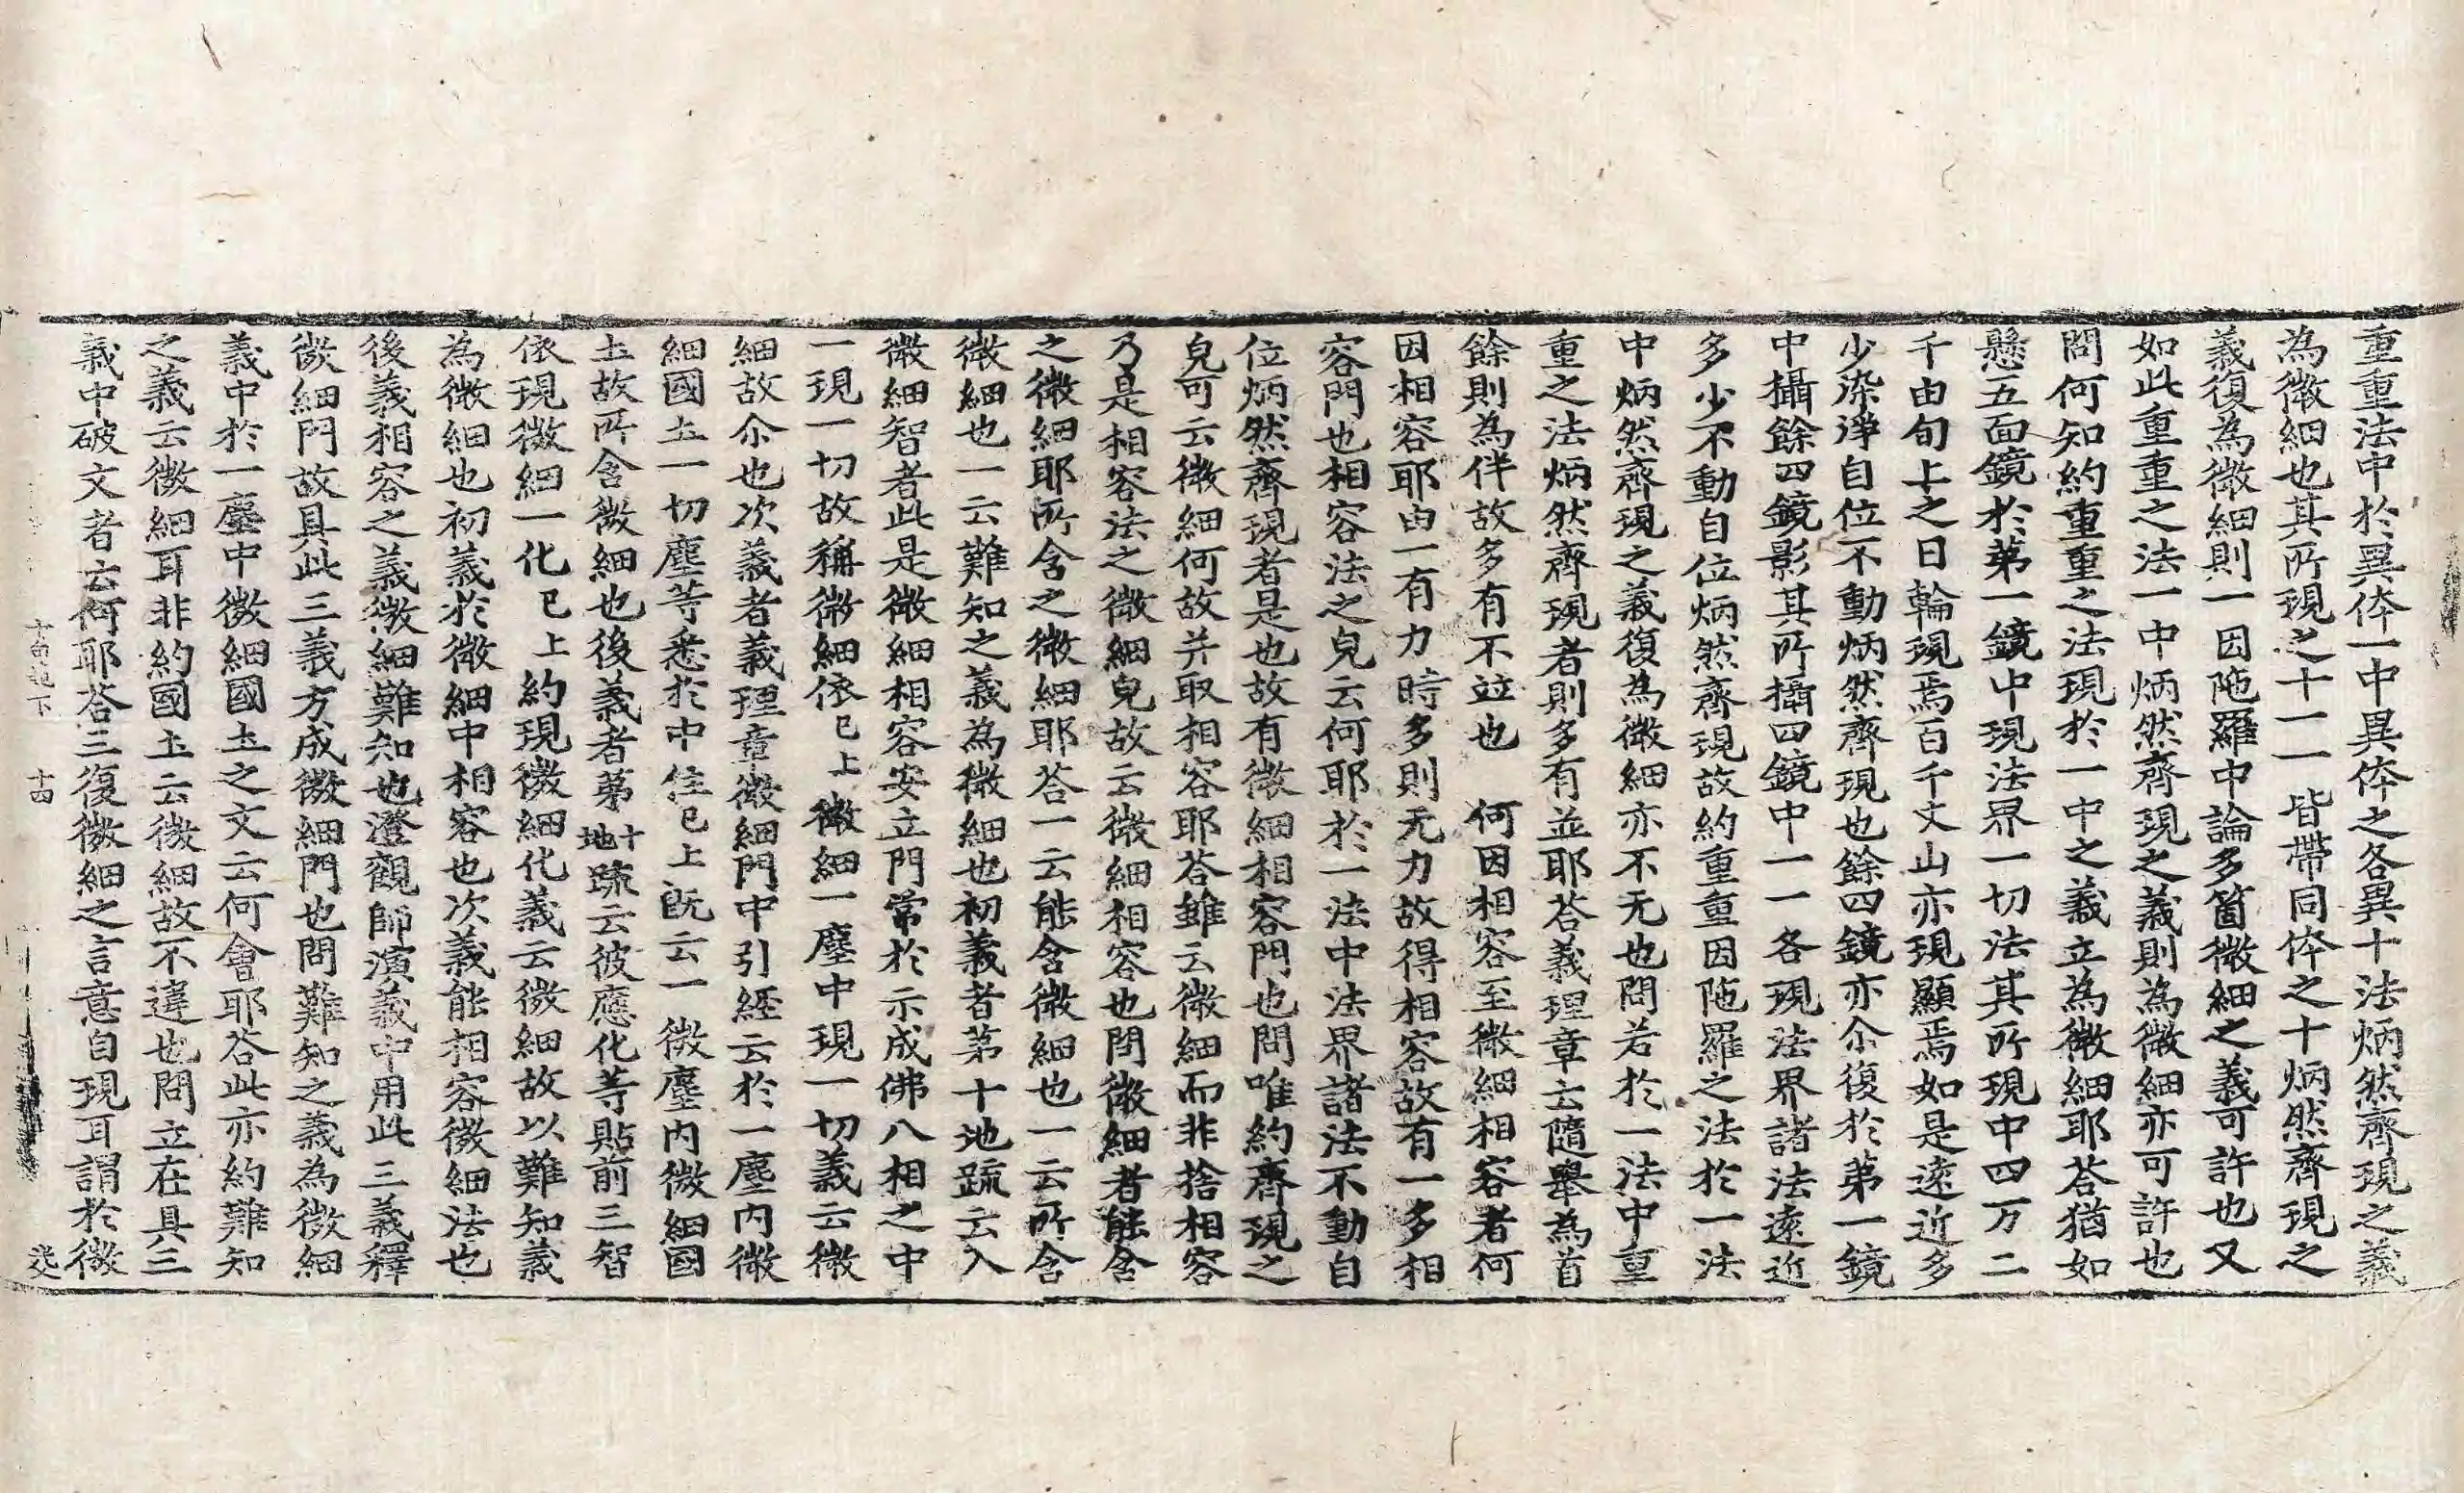 重重法中於異体一中異体之各異十法炳然齊現之義
為微細也其所現之十一一皆帶同体之十炳然齊現之
義復為微細則一因陁羅中論多箇微細之義可許也又
如此重重之法一中炳然齊現之義則為微細亦可許也
問何知約重重之法現於一中之義立為微細耶荅猶如
懸五面鏡於苐一鏡中現法界一切法其所現中四万二
千由旬上之日輪現焉百千丈山亦現顯焉如是遠近多
少染淨自位不動炳然齊現也餘四鏡亦尒復於苐一鏡
中攝餘四鏡影其所攝四鏡中一一各現法界諸法遠近
多少不動自位炳然齊現故約重重因陁羅之法於一法
中炳然齊現之義復為微細亦不无也問若於一法中重
重之法炳然齊現者則多有並耶荅義理章云隨舉為首
餘則為伴故多有不竝也 何因相容至微細相容者何
因相容耶由一有力時多則无力故得相容故有一多相
容門也相容法之皃云何耶於一法中法界諸法不動自
位炳然齊現者是也故有微細相容門也問唯約齊現之
皃可云微細何故并取相容耶荅雖云微細而非捨相容
乃是相容法之微細皃故云微細相容也問微細者能含
之微細耶所含之微細耶荅一云能含微細也一云所含
微細也一云難知之義為微細也初義者苐十地䟽云入
微細智者此是微細相容安立門常於示成佛八相之中
一現一切故稱微細依已上微細一塵中現一切義云微
細故尒也次義者義理章微細門中引経云於一塵内微
細國土一切塵等悉於中住已上旣云一微塵内微細國
土故所含微細也後義者苐十地䟽云彼應化等貼前三智
依現微細一化已上約現微細化義云微細故以難知義
為微細也初義於微細中相容也次義能相容微細法也
後義相容之義微細難知也澄觀師演義中用此三義釋
微細門故具此三義方成微細門也問難知之義為微細
義中於一塵中微細國土之文云何會耶荅此亦約難知
之義云微細耳非約國土云微細故不違也問立在具三
義中破文者云何耶荅三復微細之言意自現耳謂於微
十四